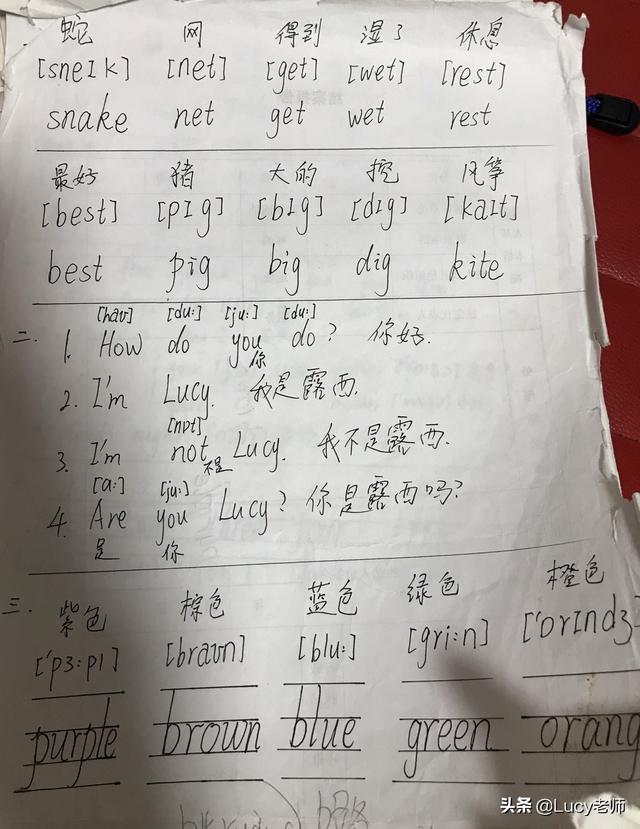 蛇 网 得到 湿了 休息
[sneIk] [net] [get] [wet] [rest]
snake net get wet rest
最好 猪 大的 挖 风筝
[best] [pIg] [bIg] [dIg] [kaIt]
best pig big dig kite
[haʊ] [du:] [ju:] [du:]
二. 1. How do you do? 你好.
你
2. I'm Lucy. 我是露西.
[nɒt]
3. I'm not Lucy. 我不是露西.
不是
[a:] [ju:]
4. Are you Lucy? 你是露西吗?
是 你
三. 紫色 棕色 蓝色 绿色 橙色
['pɜ:pl] [braʊn] [blu:] [gri:n] ['ɒrIndʒ]
purple brown blue green orang
头条 @Lucy老师